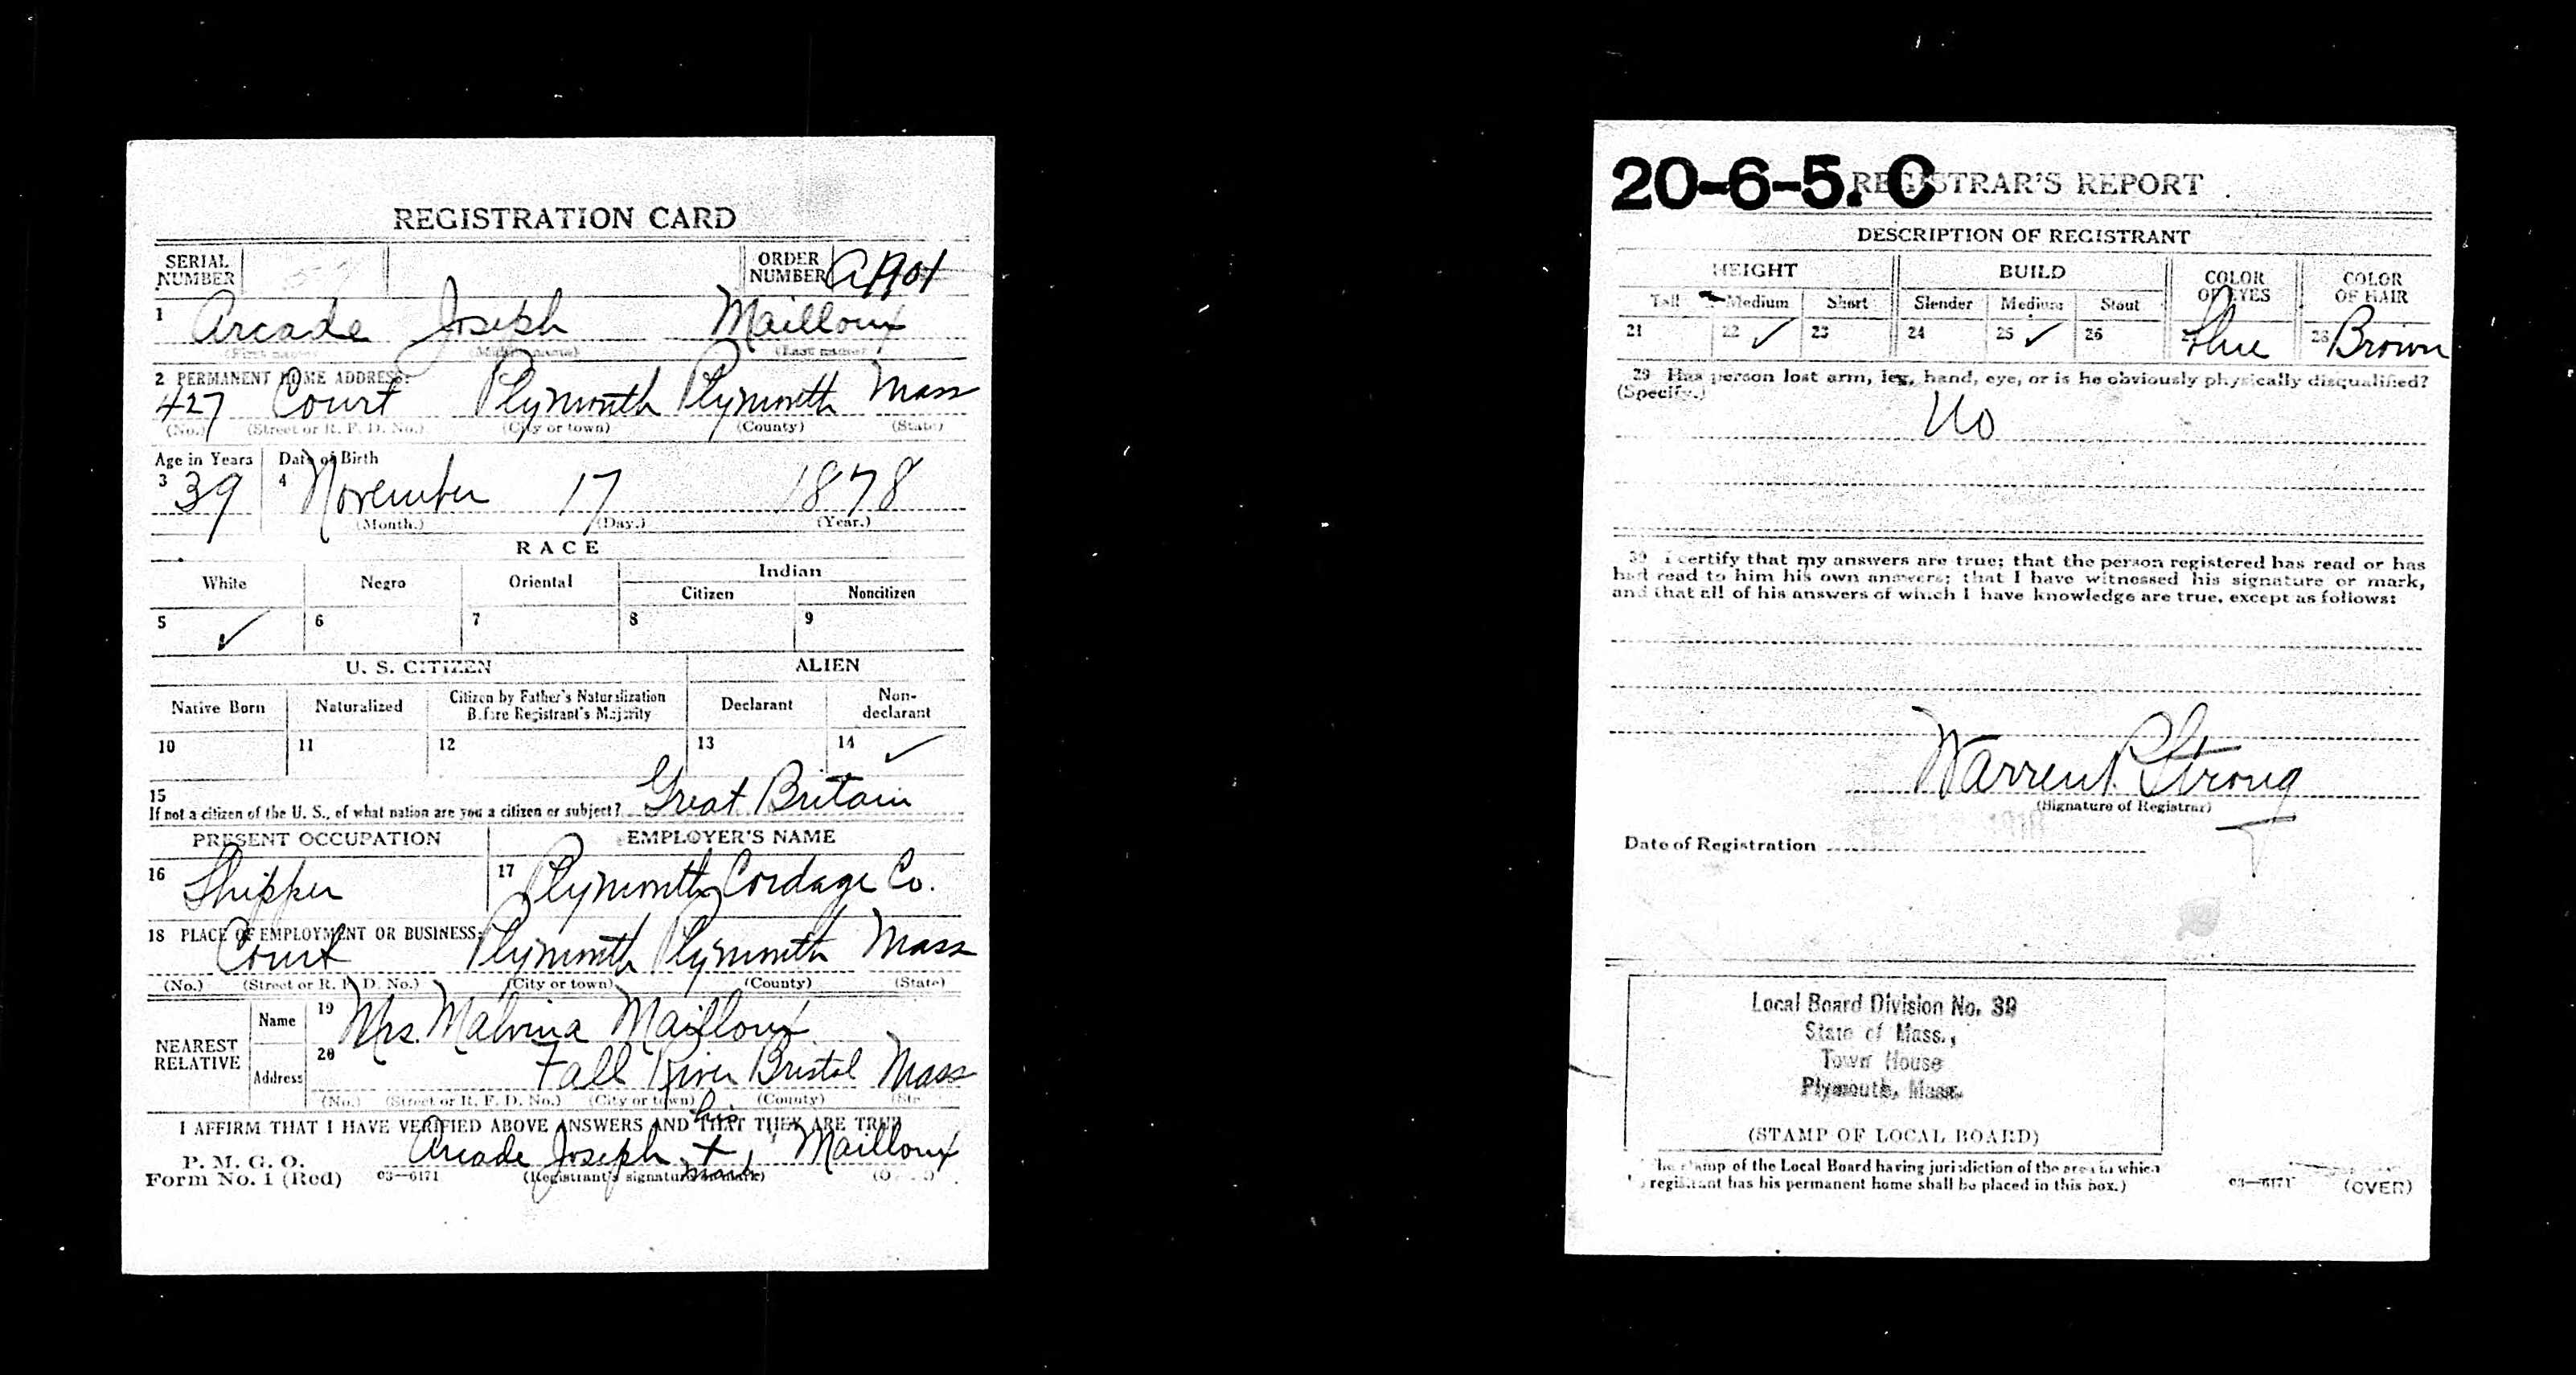 REGISTRATION CARD
SERIAL NUMBER
ORDER NUMBER A1901
1 Arcade Joseph Mailloux
(First name) (Middle name) (Last name)
2 PERMANENT HOME ADDRESS:
427 Court Plymouth Plymouth Mass
(No.) (Street or R. F. D. No.) (City or town) (County) (State)
Age in Years Date of Birth
3 39 4 November 17 1878
(Month.) (Day.) (Year.)
RACE
White Negro Oriental Indian
Citizen Noncitizen
5 ✓ 6 7 8 9
U. S. CITIZEN ALIEN
Native Born Naturalized Citizen by Father's Naturalization Before Registrant's Majority Declarant Non-declarant
10 11 12 13 14 ✓
15
If not a citizen of the U. S., of what nation are you a citizen or subject? Great Britain
PRESENT OCCUPATION EMPLOYER'S NAME
16 Shipper 17 Plymouth Cordage Co.
18 PLACE OF EMPLOYMENT OR BUSINESS:
Court Plymouth Plymouth Mass
(No.) (Street or R. F. D. No.) (City or town) (County) (State)
NEAREST RELATIVE
Name 19 Mrs. Malvina Mailloux
Address 20 Fall River Bristol Mass
(No.) (Street or R. F. D. No.) (City or town) (County)
I AFFIRM THAT I HAVE VERIFIED ABOVE ANSWERS AND THAT THEY ARE TRUE
his
Arcade Joseph + Mailloux
mark
P. M. G. O.
Form No. 1 (Red) 03—6171 (Registrant's signature or mark)
20-6-5. C
REGISTRAR'S REPORT
DESCRIPTION OF REGISTRANT
HEIGHT BUILD COLOR OF EYES COLOR OF HAIR
Tall Medium Short Slender Medium Stout
21 22 ✓ 23 24 25 ✓ 26 27 Blue 28 Brown
29 Has person lost arm, leg, hand, eye, or is he obviously physically disqualified?
(Specify.)
No
30 I certify that my answers are true; that the person registered has read or has
had read to him his own answers; that I have witnessed his signature or mark,
and that all of his answers of which I have knowledge are true, except as follows:
Warren P. Strong
(Signature of Registrar)
Date of Registration
Local Board Division No. 39
State of Mass.,
Town House
Plymouth, Mass.
(STAMP OF LOCAL BOARD)
The stamp of the Local Board having jurisdiction of the area in which
registrant has his permanent home shall be placed in this box.)
03—6171 (OVER)